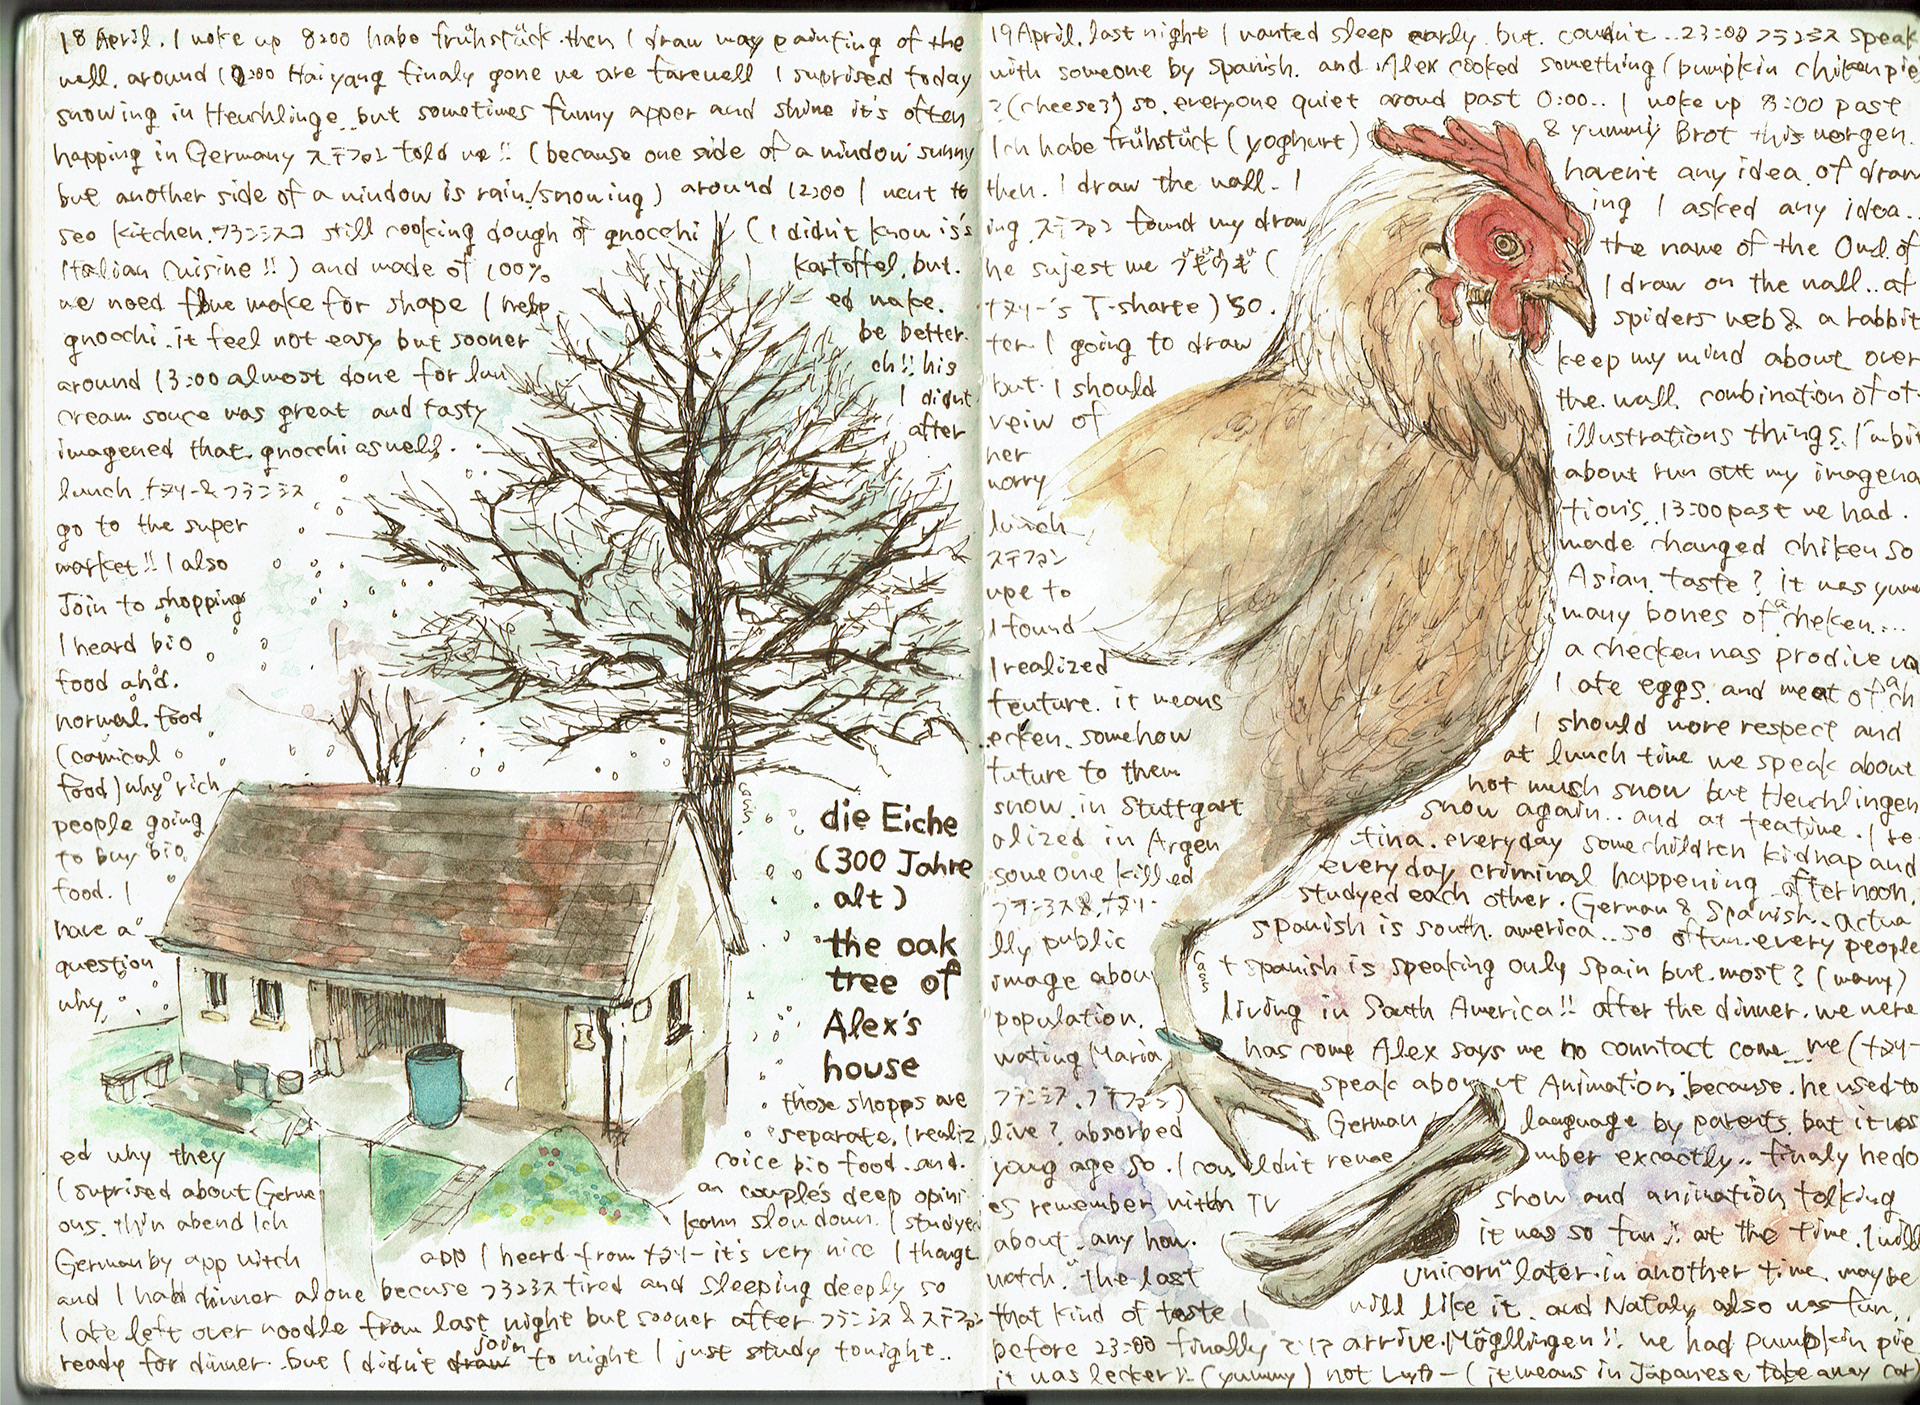 18 April. I woke up 8:00 habe frühstück then I draw way painting of the
wall. around 10:00 Haiyang finaly gone we are farewell I suprised today
snowing in Heuchlinge.. but sometimes funny apper and shine it's often
happing in Germany ステファン told me!! (because one side of a window sunny
but another side of a window is rain/snowing) around 12:00 I went to
seo kitchen. フランシスコ still cooking dough of gnocchi (I didn't know is's
Italian Cuisine!!) and made of 100% kartoffel, but.
we need five make for shape I help ed make.
gnocchi. it feel not easy but sooner be better.
around 13:00 almost done for lun ch!! his
cream souce was great and tasty I didnt
imagened that gnocchi as well. after
lunch ナタリー & フランシス
go to the super
market!! I also
Join to shopping
I heard bio
food and.
normal food
(camical
food) why rich
people going
to buy bio
food. I
have a
question
why.
die Eiche
(300 Jahre
alt)
the oak
tree of
Alex's
house
those shopps are
separate. I realiz
ed why they coice bio food. and.
(suprised about Germa an couple's deep opini
ous. thin abend Ich kann slow down. I studyed
German by app witch app I heard from ナタリー it's very nice I thougt
and I had dinner alone becuse フランシス tired and sleeping deeply so
I ate left over noodle from last night but sooner after フランシス & ステファン
ready for dinner. but I didn't draw join to night I just study tonight..
19 April. last night I wanted sleep early but. couldn't.. 23:00 フランシス speak
with someone by Spanish. and Alex cooked something (pumpkin chikenpie
? (cheese?) so everyone quiet aroud past 0:00.. I woke up 8:00 past
Ich habe frühstück (yoghurt) & yummiy Brot this morgen.
then. I draw the wall. I haven't any idea of draw
ing. ステファン found my draw ing I asked any idea..
he sujest me ブギウギ ( the name of the Owl of
ナタリー's T-sharte) so. I draw on the wall.. af
ter. I going to draw spiders web & a rabbit
but. I should keep my mind about over
veiw of the wall combination of ot
her illustrations things. I'm bit
worry about run out my imagena
tion's.. 13:00 past we had.
lunch made changed chiken so
ステファン Asian taste? it was yum
upe to many bones of a cheken...
I found a checken was prodive us
I realized I ate eggs. and meat of a ch
feuture. it means I should more respect and
ecken. somehow at lunch time we speak about
future to them not mush snow but Heuchlingen
snow. in Stuttgart snow again.. and at teatime. I re
alized in Argen tina. everyday some children kidnap and
someone killed everyday criminal happening afternoon.
フランシス & ナタリー studyed each other. (German & Spanish.. actua
lly public spanish is south america.. so often every people
image abou t spanish is speaking only Spain but most? (many)
population. living in South America!! after the dinner. we were
wating Maria has come Alex says me no conntact come... we (ナタリー
フランシス. ステファン) speak about Animation, because he used to
live? absorbed German language by parents. but it was
young age so. I couldn't reme mber excactly.. finaly he do
es remember with TV show and animation tolking
about any how. it was so fun!! at the time. I will
watch "the last Unicorn" later in another time. maybe
that kind of taste I will like it. and Nataly also was fun..
before 23:00 finally arrive Mögllingen!! we had pumpkin pie
it was lecker!! (yummy) not (it means in Japanese take away car)
Casis
Casis